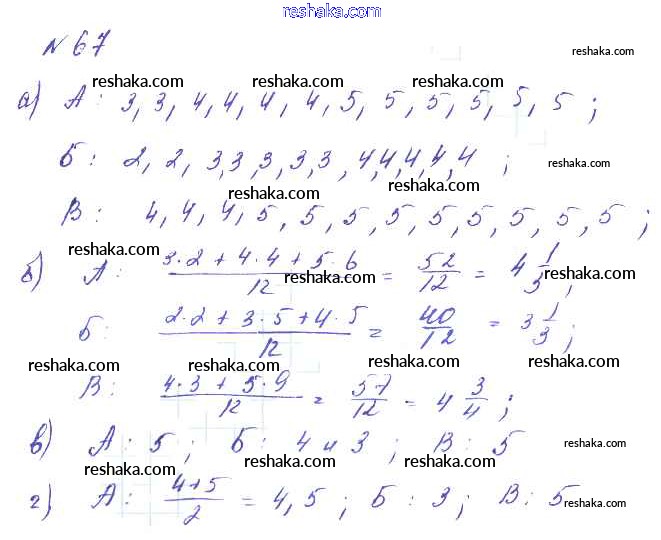 www.reshaka.com
№ 67
reshaka.com
reshaka.com reshaka.com reshaka.com
а) А: 3, 3, 4, 4, 4, 4, 5, 5, 5, 5, 5, 5 ;
Б: 2, 2, 3, 3, 3, 3, 3, 4, 4, 4, 4, 4 ; reshaka.com
reshaka.com
В: 4, 4, 4, 5, 5, 5, 5, 5, 5, 5, 5, 5 ;
reshaka.com
б) А: (3·2 + 4·4 + 5·6)/12 = 52/12 = 4 1/3 ; reshaka.com
Б: (2·2 + 3·5 + 4·5)/12 = 40/12 = 3 1/3 ;
reshaka.com reshaka.com reshaka.com
В: (4·3 + 5·9)/12 = 57/12 = 4 3/4 ;
в) А: 5 ; Б: 4 и 3 ; В: 5 reshaka.com
reshaka.com reshaka.com reshaka.com
г) А: (4+5)/2 = 4,5 ; Б: 3 ; В: 5 reshaka.com